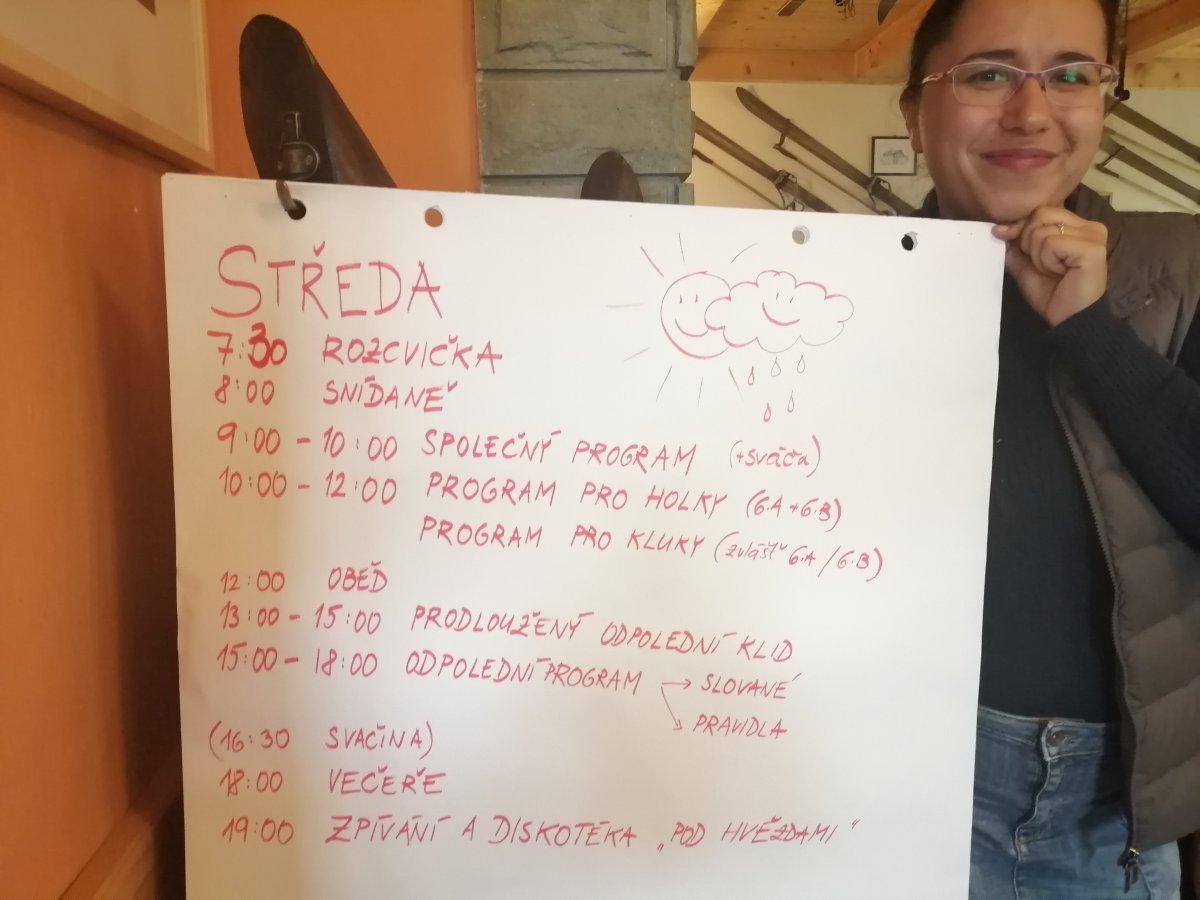 STŘEDA
7:30 ROZCVIČKA
8:00 SNÍDANĚ
9:00 - 10:00 SPOLEČNÝ PROGRAM (+sváča)
10:00 - 12:00 PROGRAM PRO HOLKY (6.A + 6.B)
PROGRAM PRO KLUKY (zvlášť 6.A / 6.B)
12:00 OBĚD
13:00 - 15:00 PRODLOUŽENÝ ODPOLEDNÍ KLID
15:00 - 18:00 ODPOLEDNÍ PROGRAM → SLOVANÉ
→ PRAVIDLA
(16:30 SVAČINA)
18:00 VEČEŘE
19:00 ZPÍVÁNÍ A DISKOTÉKA „POD HVĚZDAMI“